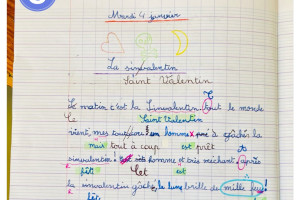 Mardi 4 janvier
La sinvalentin
Saint Valentin
Le matin c'est la Sinvalentin. Tout le monde
Saint Valentin
vient, mes un homme à gâcher la
mais tout à coup est prêt
sinvalentin! homme est très méchant, après
fêt Cet est
la sinvalentin gâché, la lune brille de mille feux!
fêt